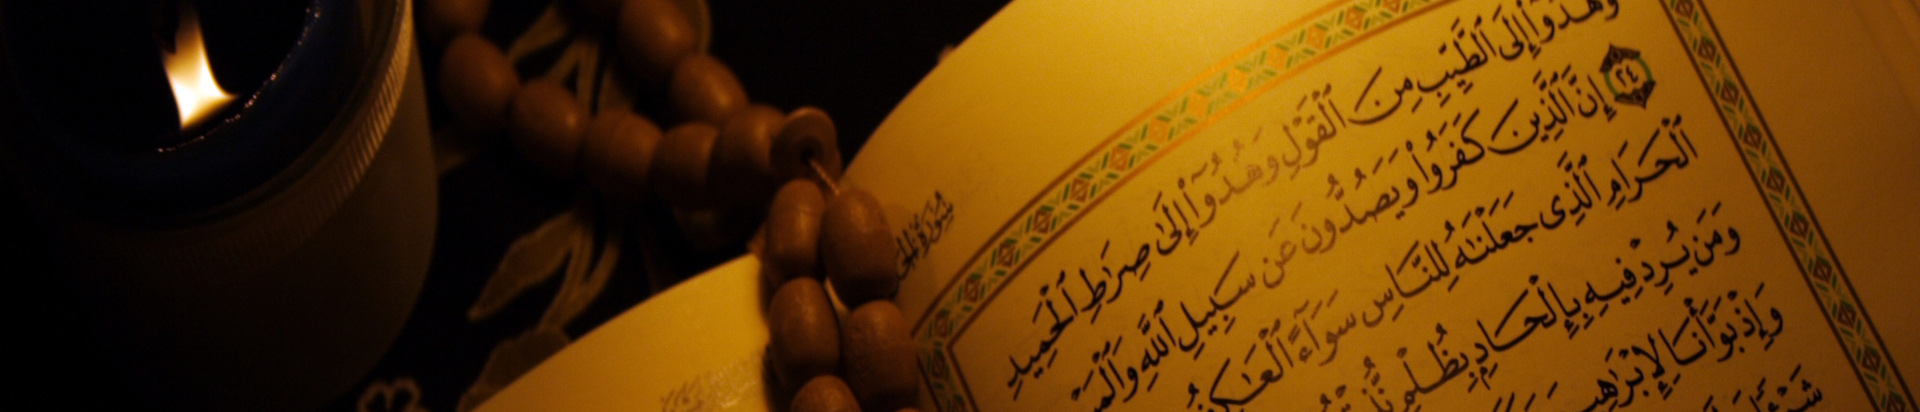 سُورَةُ الحَجِّ
وَهُدُوٓا۟ إِلَى ٱلطَّيِّبِ مِنَ ٱلْقَوْلِ وَهُدُوٓا۟ إِلَىٰ صِرَٰطِ ٱلْحَمِيدِ
٢٤ إِنَّ ٱلَّذِينَ كَفَرُوا۟ وَيَصُدُّونَ عَن سَبِيلِ ٱللَّهِ
ٱلْحَرَامِ ٱلَّذِى جَعَلْنَٰهُ لِلنَّاسِ سَوَآءً ٱلْعَٰكِفُ
وَمَن يُرِدْ فِيهِ بِإِلْحَادٍۭ بِظُلْمٍ
وَإِذْ بَوَّأْنَا لِإِبْرَٰهِيمَ